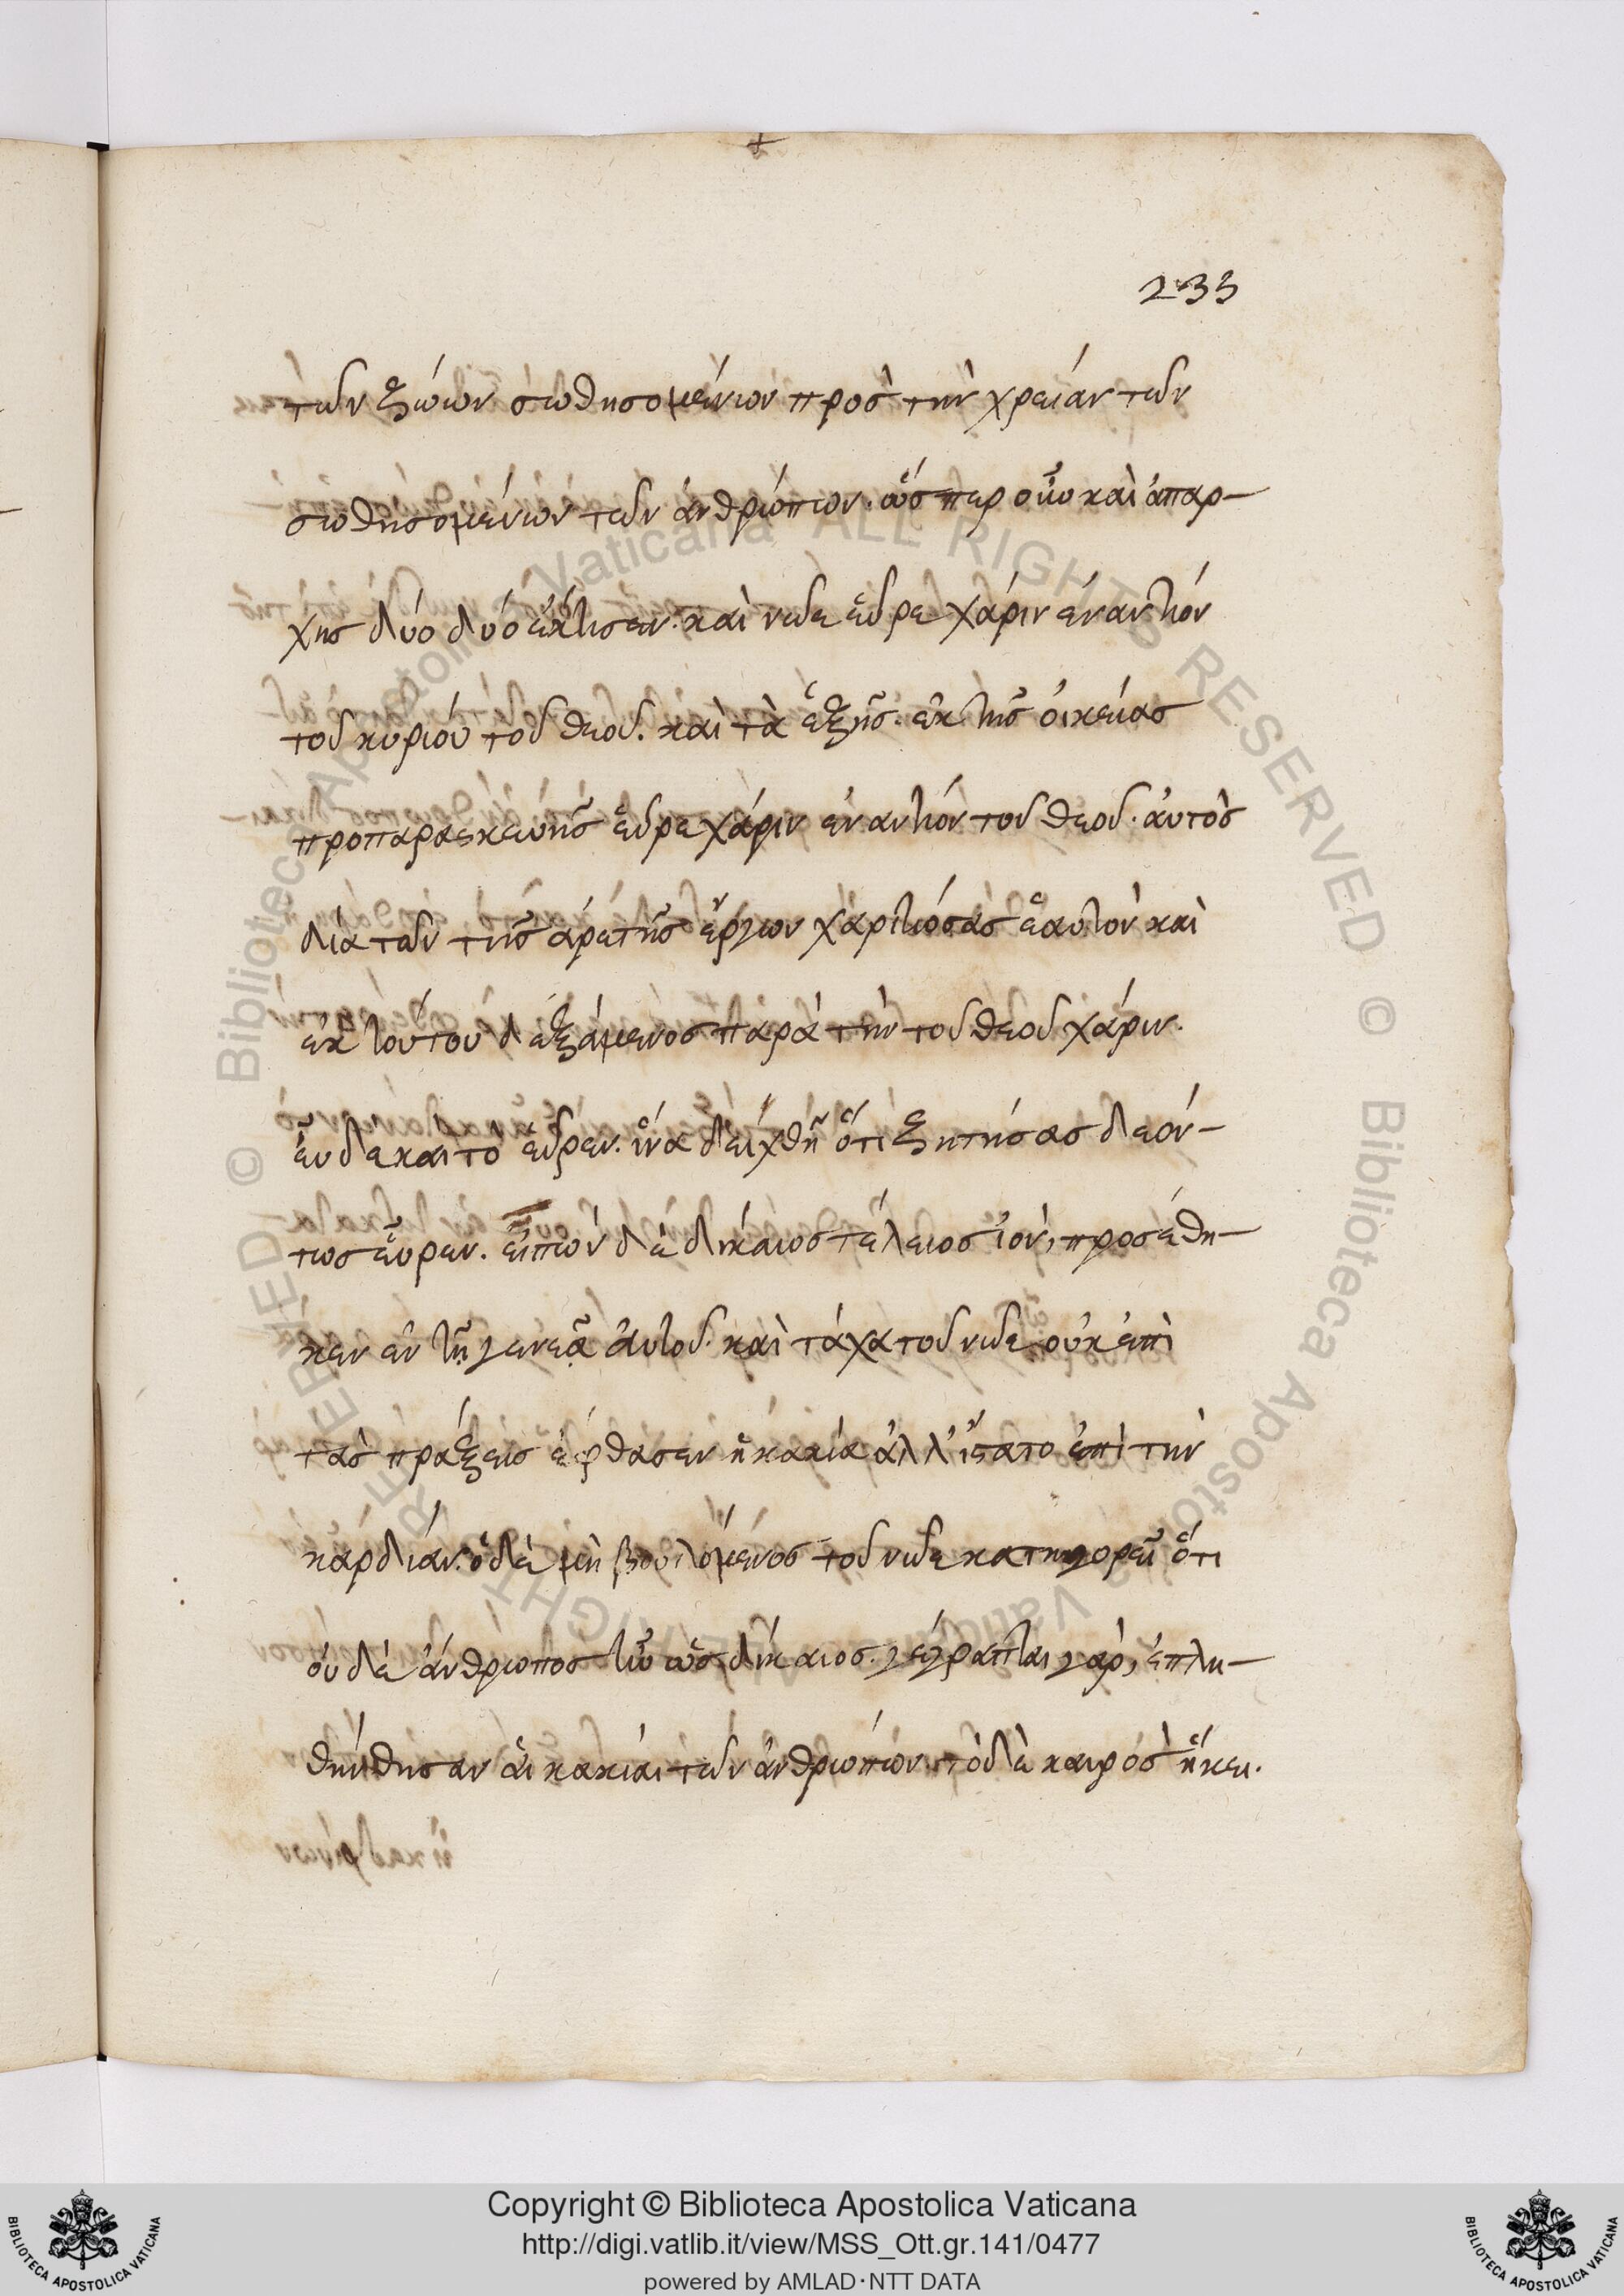 233
τῶν ζώων σωθησομένων πρὸς τὴν χρείαν τῶν
σωθησομένων τῶν ἀνθρώπων. ὥσπερ οὖν καὶ ἀπαρ-
χης δύο δύο ἔκτισεν. καὶ νῶε εὗρε χάριν ἐναντίον
τοῦ κυρίου τοῦ θεοῦ. καὶ τὰ ἑξῆς. ἐκ τῆς οἰκείας
προπαρασκευῆς εὗρε χάριν ἐναντίον τοῦ θεοῦ. ἀυτὸς
δια τῶν τῆς ἀρετῆς ἔργων χαριτώσας ἑαυτὸν καὶ
ἐκ τούτου δεξάμενος παρὰ τὴν τοῦ θεοῦ χάριν.
ἐυ δε και τὸ εὗρεν. ἵνα δειχθῆ ὅτι ζητήσας δεόν-
τως εὗρεν. ἐιπὼν δὲ δίκαιος τέλειος ὢν, προσέθη-
κεν ἐν τῇ γενεᾷ ἀυτοῦ. καὶ τάχα τοῦ νῶε οὐκ ἐπὶ
τὰς πράξεις ἔφθασεν ἡ κακία ἀλλ' ἵστατο ἐπὶ τὴν
καρδίαν. ὁ δὲ μὴ βουλόμενος τοῦ νῶε κατηγορεῖ ὅτι
ὀυδὲ ἄνθρωπος ἦν ὡς δίκαιος. γέγραπται γὰρ, ἐπλη-
θύνθησαν ἁι κακίαι τῶν ἀνθρώπων. τὸ δὲ καιρὸς ἥκει.
Copyright © Biblioteca Apostolica Vaticana
http://digi.vatlib.it/view/MSS_Ott.gr.141/0477
powered by AMLAD·NTT DATA
BIBLIOTECA APOSTOLICA VATICANA
BIBLIOTECA APOSTOLICA VATICANA
© Biblioteca Apostolica Vaticana ALL RIGHTS RESERVED © Biblioteca Apostolica Vaticana ALL RIGHTS RESERVED